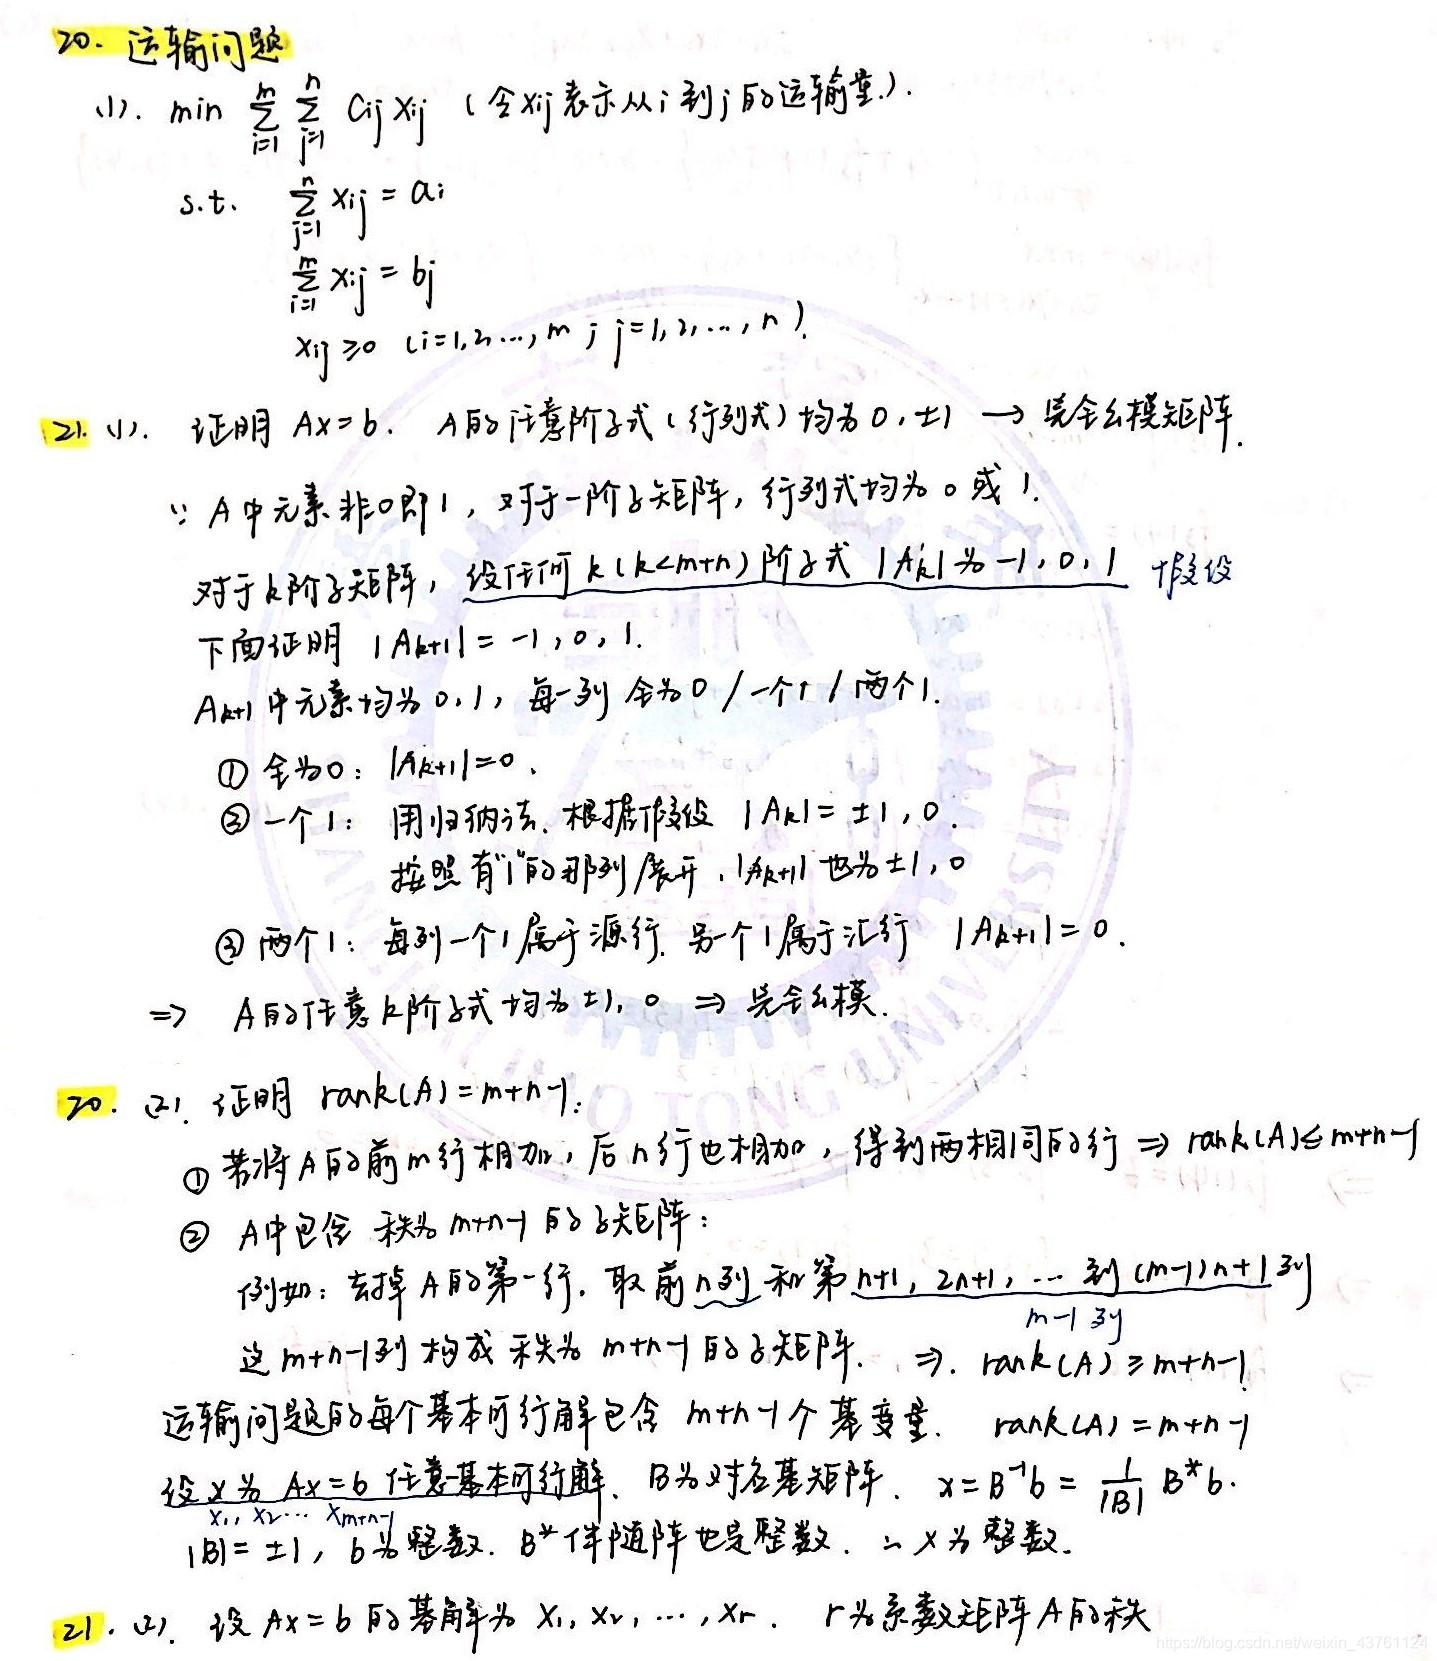 20. 运输问题
(1). min ∑_{i=1}^{m} ∑_{j=1}^{n} Cij Xij (令Xij表示从i到j的运输量.).
s.t. ∑_{j=1}^{n} xij = ai
∑_{i=1}^{m} xij = bj
xij ≥0 (i=1,2,…,m ; j=1,2,…,n).
21. (1). 证明 Ax=b. A的任意阶子式(行列式)均为0,±1 → 完全幺模矩阵.
∵ A中元素非0即1, 对于一阶子矩阵, 行列式均为0或1.
对于k阶子矩阵, 设任何k(k<m+n)阶子式 |Ak|为-1,0,1 假设
下面证明 |Ak+1| = -1,0,1.
Ak+1中元素均为0,1, 每一列 全为0/一个1/两个1.
① 全为0: |Ak+1|=0.
② 一个1: 用归纳法. 根据假设 |Ak| = ±1,0.
按照有"1"的那列展开. |Ak+1|也为±1,0
③ 两个1: 每列一个1属于源行. 另一个1属于汇行 |Ak+1|=0.
⇒ A的任意k阶子式均为±1,0 ⇒ 完全幺模.
20. (2). 证明 rank(A)=m+n-1.
① 若将A的前m行相加, 后n行也相加, 得到两相同的行 ⇒ rank(A)≤m+n-1
② A中包含 秩为m+n-1的子矩阵:
例如: 去掉A的第一行. 取前n列和第n+1, 2n+1, … 到(m-1)n+1列
m-1列
这m+n-1列构成秩为m+n-1的子矩阵. ⇒. rank(A)≥m+n-1.
运输问题的每个基本可行解包含 m+n-1个 基变量. rank(A)=m+n-1
设x为 Ax=b 任意基本可行解. B为对应基矩阵. x=B⁻¹b = 1/|B| B*b.
x1, x2 … xm+n-1
|B|=±1, b为整数. B*伴随阵也是整数. ∴ x为整数.
21. (2). 设Ax=b的基解为 x1, x2, …, xr. r为系数矩阵A的秩
https://blog.csdn.net/weixin_43761124
JIAO TONG UNIVERSITY